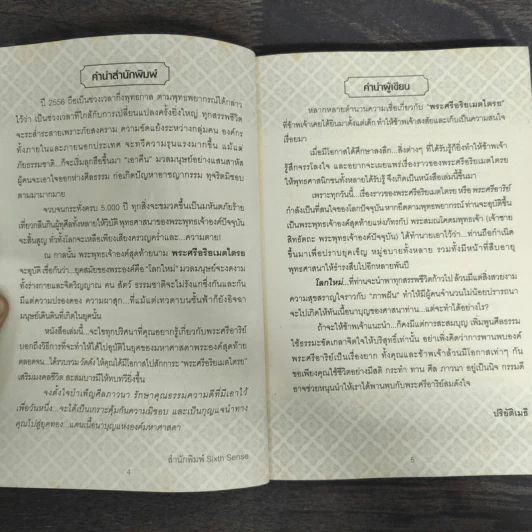 คำนำสำนักพิมพ์
ปี 2556 ถือเป็นช่วงเวลากึ่งพุทธกาล ตามพุทธพยากรณ์ได้กล่าว
ไว้ว่า เป็นช่วงเวลาที่ใกล้กับการเปลี่ยนแปลงครั้งยิ่งใหญ่ ทุกสรรพชีวิต
จะระส่ำระสายเพราะภัยสงคราม ความขัดแย้งระหว่างกลุ่มคน องค์กร
ทั้งภายในและภายนอกประเทศ จะทวีความรุนแรงมากขึ้น แม้แต่
ภัยธรรมชาติ...ก็จะเริ่มลุกฮือขึ้นมา "เอาคืน" มวลมนุษย์อย่างแสนสาหัส
ผู้คนจะเอาใจออกห่างศีลธรรม ก่อเกิดปัญหาอาชญากรรม ทุจริตมิชอบ
ตามมามากมาย
จวบจนกระทั่งครบ 5,000 ปี ทุกสิ่งจะขมวดขึ้นเป็นมหันตภัยร้าย
เที่ยวกลืนกินผู้ทุศีลทั้งหลายให้วิบัติ พุทธศาสนาของพระพุทธเจ้าองค์ปัจจุบัน
จะสิ้นสูญ ทั่วทั้งโลกจะเหลือเพียงเสียงครวญคร่ำและ...ความตาย!
ณ กาลนั้น พระพุทธเจ้าองค์สุดท้ายนาม พระศรีอริยเมตไตรย
จะอุบัติ เชื่อกันว่า...ยุคสมัยของพระองค์คือ "โลกใหม่" มวลมนุษย์จะงดงาม
ทั้งร่างกายและจิตวิญญาณ คน สัตว์ ธรรมชาติจะไม่รังแกซึ่งกันและกัน
มีแต่ความปรองดอง ความผาสุก...ที่แม้แต่เทวดาบนชั้นฟ้าก็ยังอิจฉา
มนุษย์เดินดินที่เกิดในยุคนั้น
หนังสือเล่มนี้...จะไขทุกปริศนาที่คุณอยากรู้เกี่ยวกับพระศรีอาริย์
บอกถึงวิธีการที่จะทำให้ได้ไปอุบัติในยุคของมหาศาสดาพระองค์สุดท้าย
ตลอดจน...ได้รวบรวมวัดดัง ให้คุณได้มีโอกาสไปสักการะ "พระศรีอริยเมตไตรย"
เสริมมงคลชีวิต สะสมบารมีให้ทบทวียิ่งขึ้น
จงตั้งใจบำเพ็ญศีลภาวนา รักษาคุณธรรมความดีที่มีเอาไว้
เพื่อวันหนึ่ง...จะได้เป็นเกราะคุ้มกันความมิชอบ และเป็นกุญแจนำทาง
คุณไปสู่ยุคทอง...แดนเนื้อนาบุญแห่งองค์มหาศาสดา
สำนักพิมพ์ Sixth Sense
4
คำนำผู้เขียน
หลากหลายตำนานความเชื่อเกี่ยวกับ "พระศรีอริยเมตไตรย"
ที่ข้าพเจ้าเคยได้ยินมาตั้งแต่เด็ก ทำให้ข้าพเจ้าสงสัยและเก็บเป็นความสนใจ
เรื่อยมา
เมื่อมีโอกาสได้ศึกษาลงลึก...สิ่งต่างๆ ที่ได้รับรู้ก็ยิ่งทำให้ข้าพเจ้า
รู้สึกจรรโลงใจ และอยากจะเผยแพร่เรื่องราวของพระศรีอริยเมตไตรย
ให้พุทธศาสนิกชนทั้งหลายได้รับรู้ จึงเกิดเป็นหนังสือเล่มนี้ขึ้นมา
เพราะทุกวันนี้...เรื่องราวของพระศรีอริยเมตไตรย หรือ พระศรีอาริย์
กำลังเป็นที่สนใจของโลกปัจจุบัน หากยึดตามพุทธทำนายแล้ว พระองค์จะอุบัติขึ้น
เป็นพระพุทธเจ้าองค์สุดท้ายแห่งภัทรกัป พระสมณโคดมพุทธเจ้า (เจ้าชาย
สิทธัตถะ พระพุทธเจ้าองค์ปัจจุบัน) ได้ทำนายเอาไว้ว่า...ท่านถือกำเนิด
ขึ้นมาเพื่อปราบยุคเข็ญ หมู่อบายทั้งหลาย รวมทั้งมีหน้าที่สืบอายุ
พุทธศาสนาให้ธำรงสืบไปอีกหลายพันปี
โลกใหม่...ที่ท่านจะนำพาทุกสรรพชีวิตก้าวไป ล้วนมีแต่สิ่งสวยงาม
ความสุขสราญใจราวกับ "ภาพฝัน" ทำให้มีผู้คนจำนวนไม่น้อยปรารถนา
จะไปเกิดให้ทันเนื้อนาบุญของศาสนาท่าน...แต่จะทำได้อย่างไร?
ถ้าจะให้ข้าพเจ้าแนะนำ...ก็คงมีแต่การสะสมบุญ เพิ่มพูนศีลธรรม
ใช้ธรรมะขัดเกลาจิตใจให้บริสุทธิ์เท่านั้น อย่าเพิ่งคิดว่าการพานพบองค์
พระศรีอาริย์เป็นเรื่องยาก ทั้งคุณและข้าพเจ้าล้วนมีโอกาสเท่าๆ กัน
ขอเพียงคุณใช้ชีวิตอย่างมีสติ กระทำ ทาน ศีล ภาวนา อยู่เป็นนิจ กรรมดี
อาจช่วยหนุนนำให้เราได้พานพบกับพระศรีอาริย์สมดังใจ
ปริยัติเมธี
5